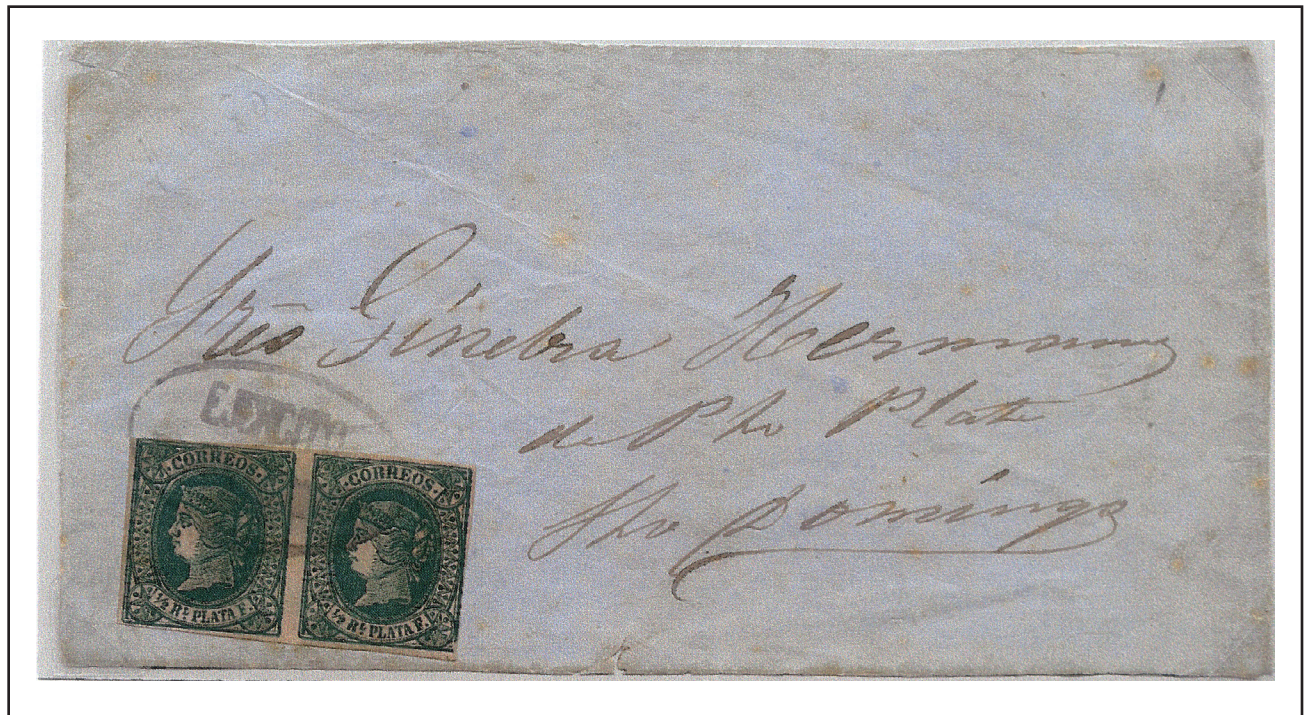 Sres Ginebra Hermanos
de Pto Plata
Sto Domingo
EJERCITO
CORREOS
½ Rˢ PLATA F.
CORREOS
½ Rˢ PLATA F.